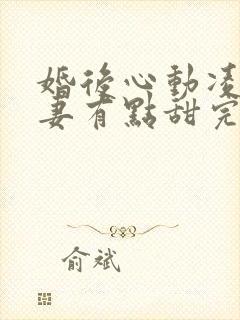 婚後心動凌
妻有點甜完
俞斌